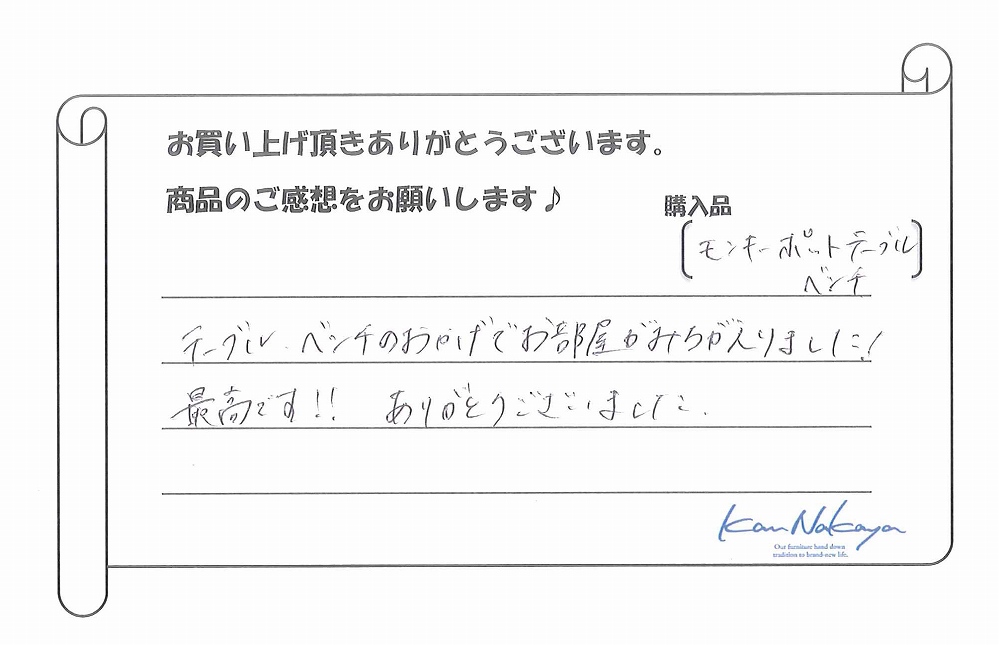 お買い上げ頂きありがとうございます。
商品のご感想をお願いします♪
購入品
モンキーポットテーブル
ベンチ
テーブル、ベンチのおかげでお部屋がみちがえりました!
最高です!! ありがとうございました.
Kan Nakaya
Our furniture hand down
tradition to brand-new life.